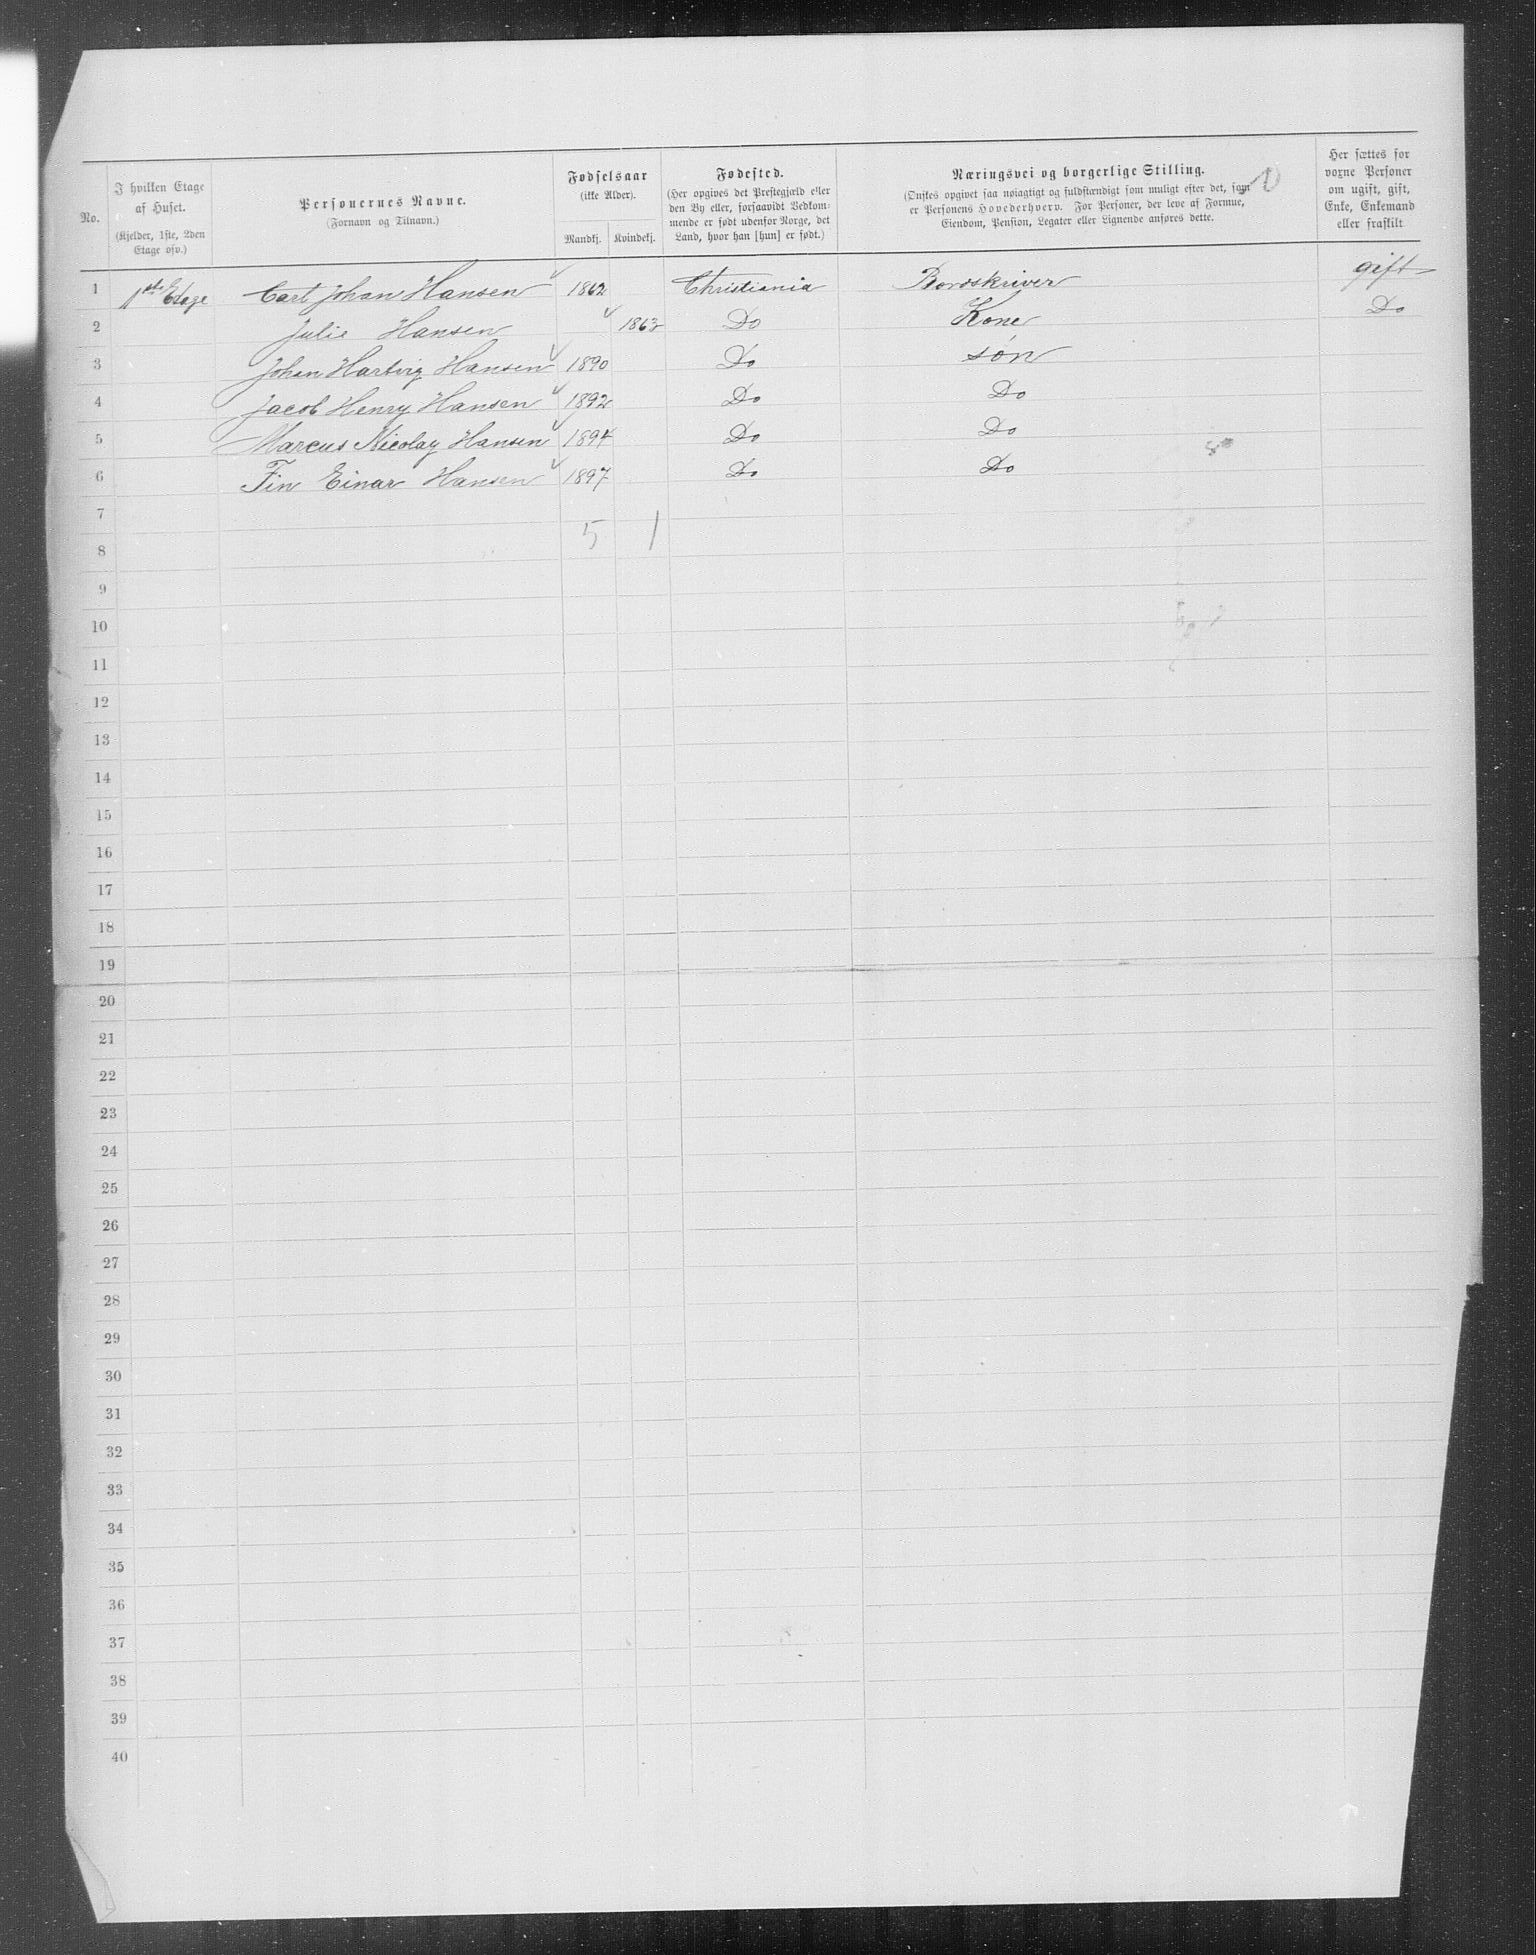 No.
I hvilken Etage af Huset.
(Kjelder, 1ste, 2den Etage osv.)
Personernes Navne.
(Fornavn og Tilnavn.)
Fødselsaar
(ikke Alder).
Mandkj. Kvindekj.
Fødested.
(Her opgives det Prestegjæld eller
den By eller, forsaavidt Vedkom-
mende er født udenfor Norge, det
Land, hvor han [hun] er født.)
Næringsvei og borgerlige Stilling.
(Ønskes opgivet saa nøiagtigt og fuldstændigt som muligt efter det, som
er Personens Hovederhverv. For Personer, der leve af Formue,
Eiendom, Pension, Legater eller Lignende anføres dette.
Her sættes for
voxne Personer
om ugift, gift,
Enke, Enkemand
eller fraskilt
1 1ste Etage Carl Johan Hansen 1862 Christiania Bordskriver gift
2 Julie Hansen 1863 Do Kone Do
3 Johan Hartvig Hansen 1890 Do søn
4 Jacob Henry Hansen 1892 Do Do
5 Marcus Nicolay Hansen 1894 Do Do
6 Fin Einar Hansen 1897 Do Do
7
8 5 1
9
10
11
12
13
14
15
16
17
18
19
20
21
22
23
24
25
26
27
28
29
30
31
32
33
34
35
36
37
38
39
40